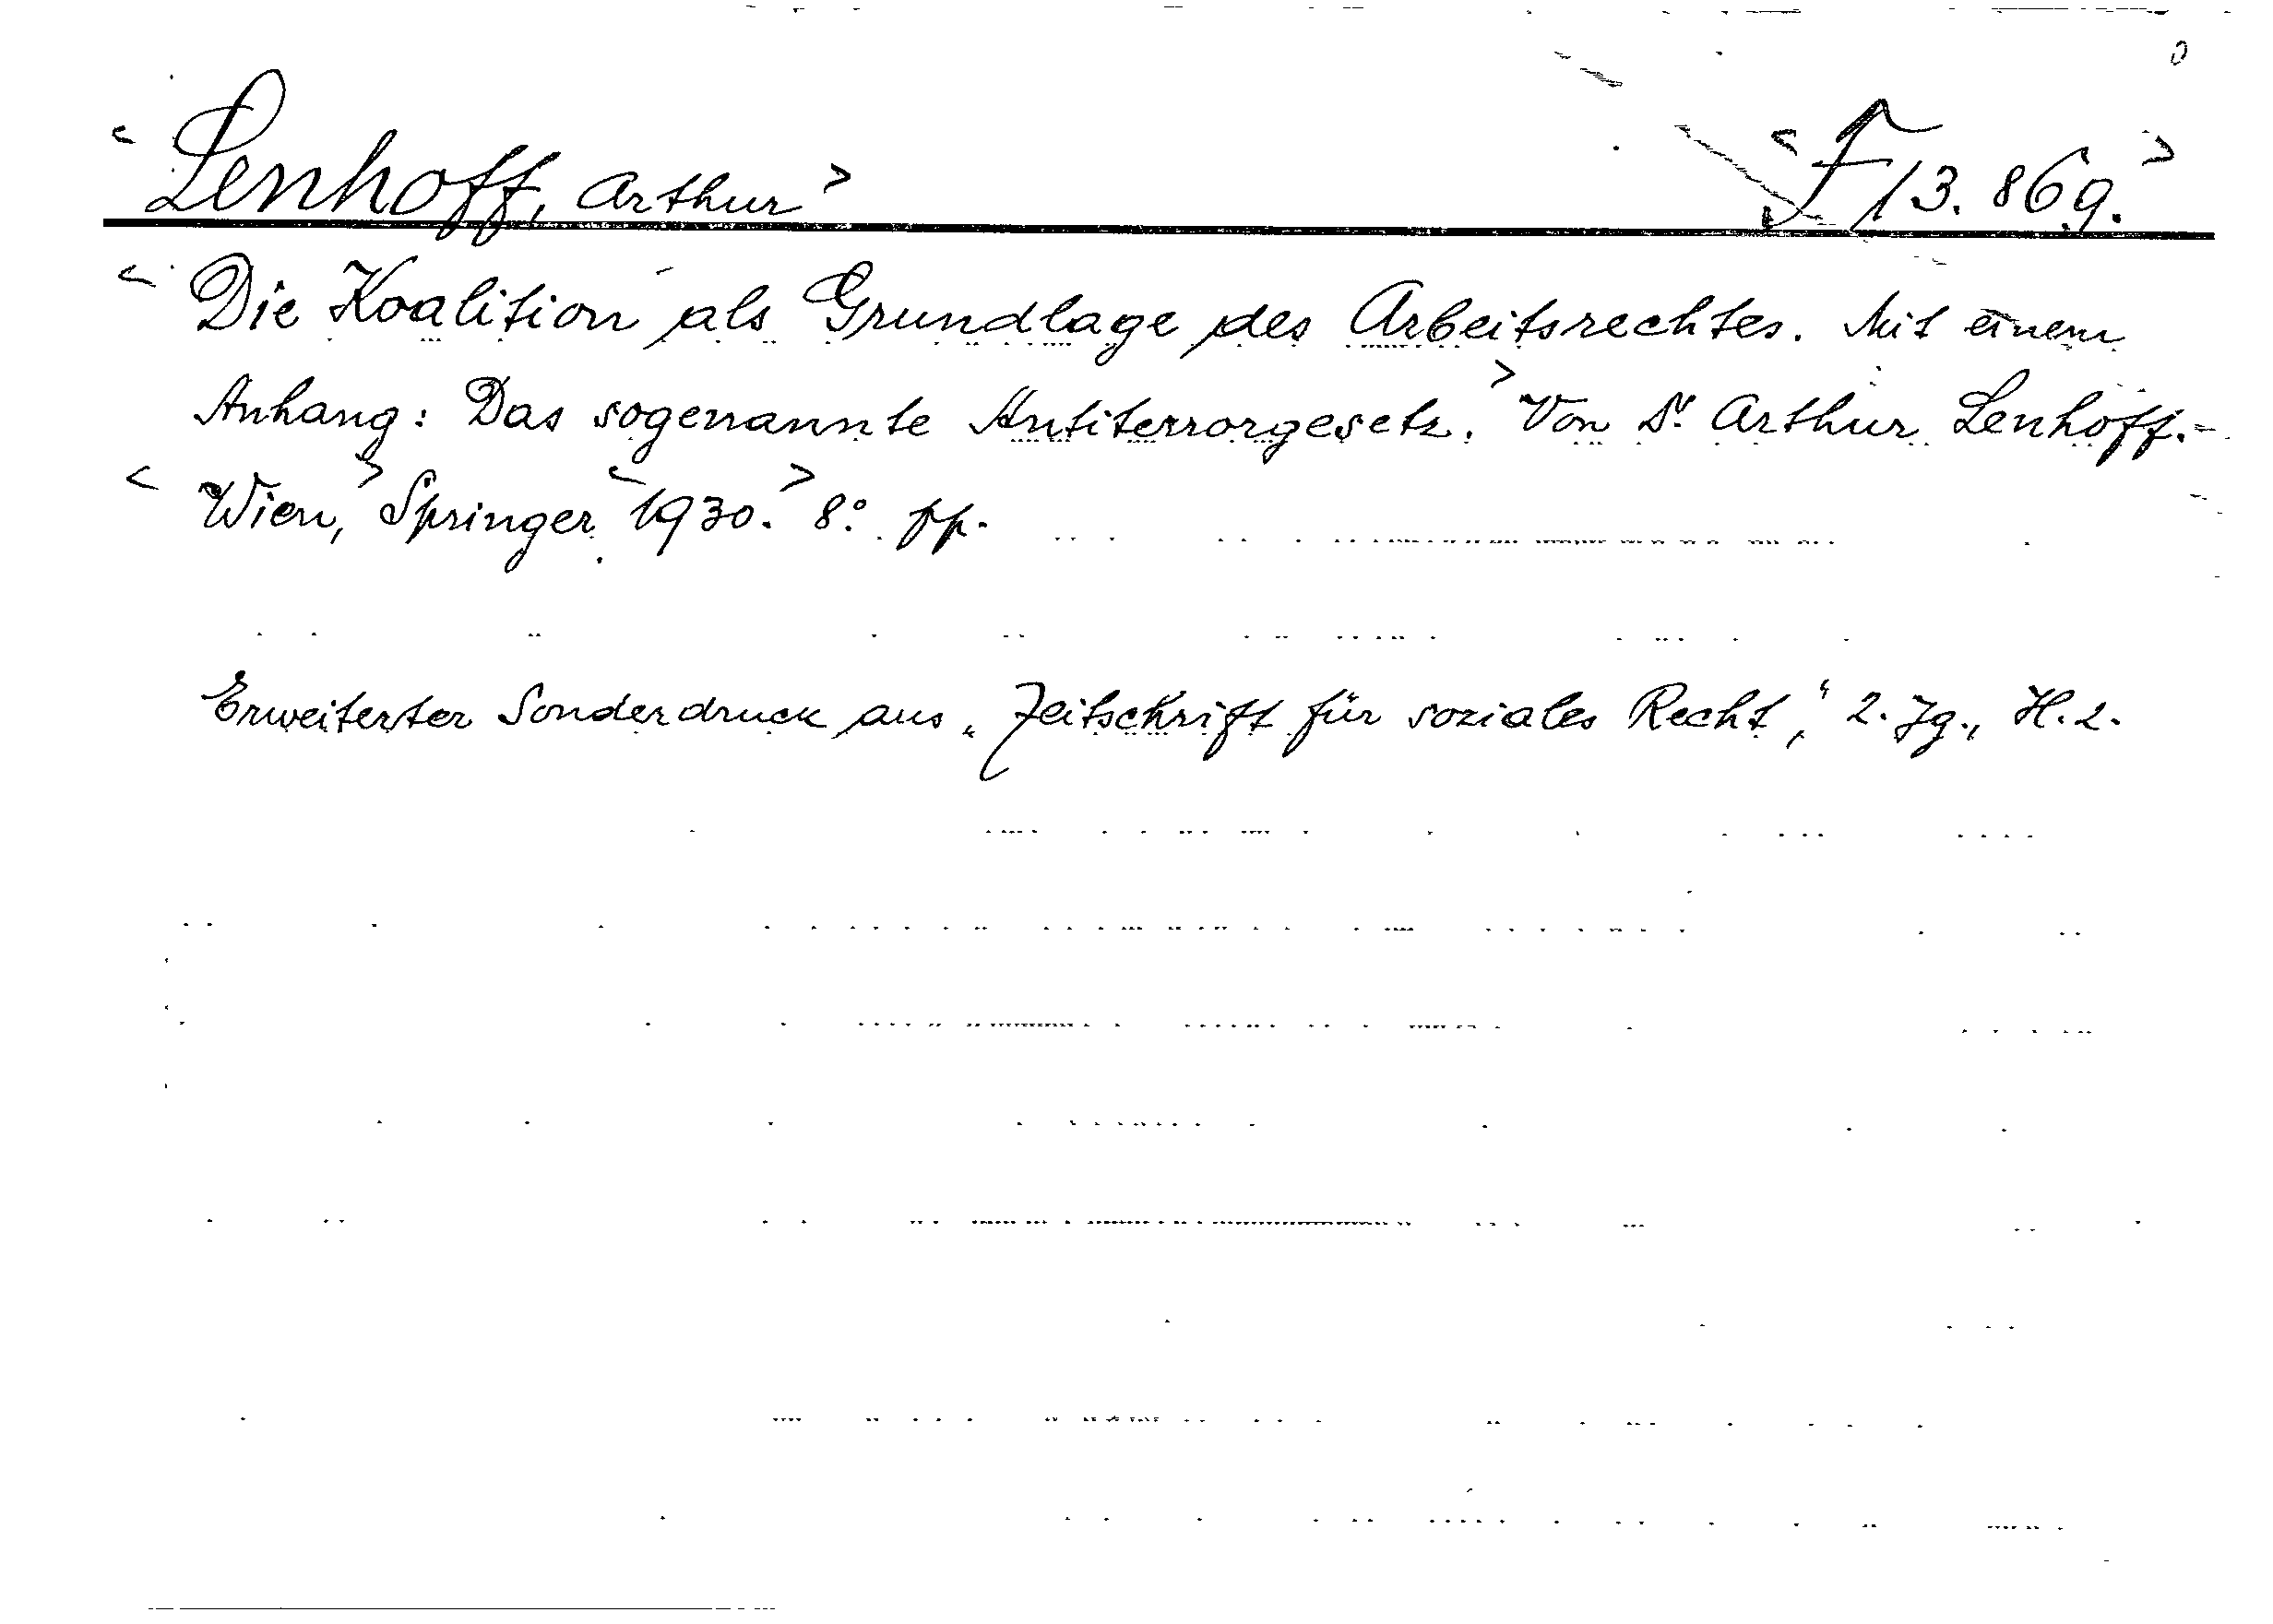 < Lenhoff, Arthur > < F 13.869. >
< Die Koalition als Grundlage des Arbeitsrechtes. Mit einem
Anhang: Das sogenannte Antiterrorgesetz. > Von Dr. Arthur Lenhoff.-
< Wien, > Springer < 1930. > 8°. pp.
Erweiterter Sonderdruck aus „Zeitschrift für soziales Recht," 2. Jg., H. 2.